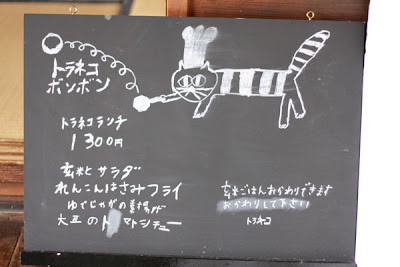 トラネコ
ボンボン
トラネコランチ
1300円
玄米とサラダ
れんこんはさみフライ
ゆでじゃがの素揚げ
大豆のトマトシチュー
玄米ごはんおかわりできます
おかわりして下さい
トラネコ